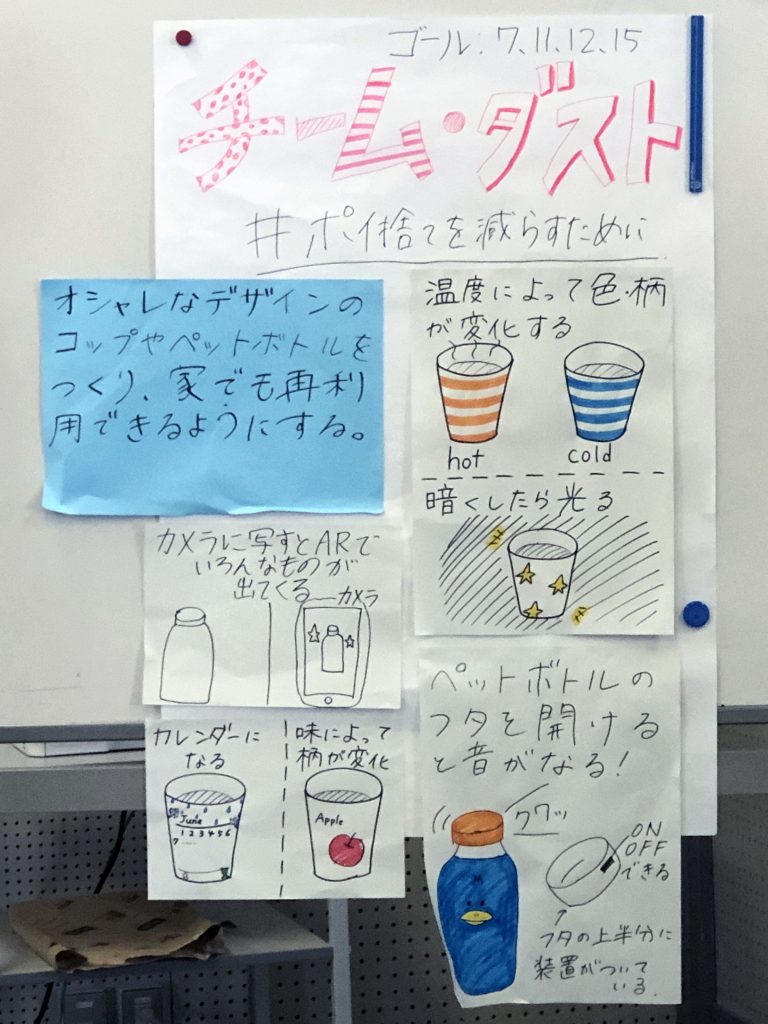 ゴール:7,11,12,15
チーム・ダスト
#ポイ捨てを減らすために
オシャレなデザインの
コップやペットボトルを
つくり、家でも再利
用できるようにする。
温度によって色・柄
が変化する
hot
cold
暗くしたら光る
カメラに写すとARで
いろんなものが
出てくる
カメラ
カレンダーに
なる
June
1 2 3 4 5 6
7
味によって
柄が変化
Apple
ペットボトルの
フタを開ける
と音がなる!
クワッ
ON
OFF
できる
フタの上半分に
装置がついて
いる.